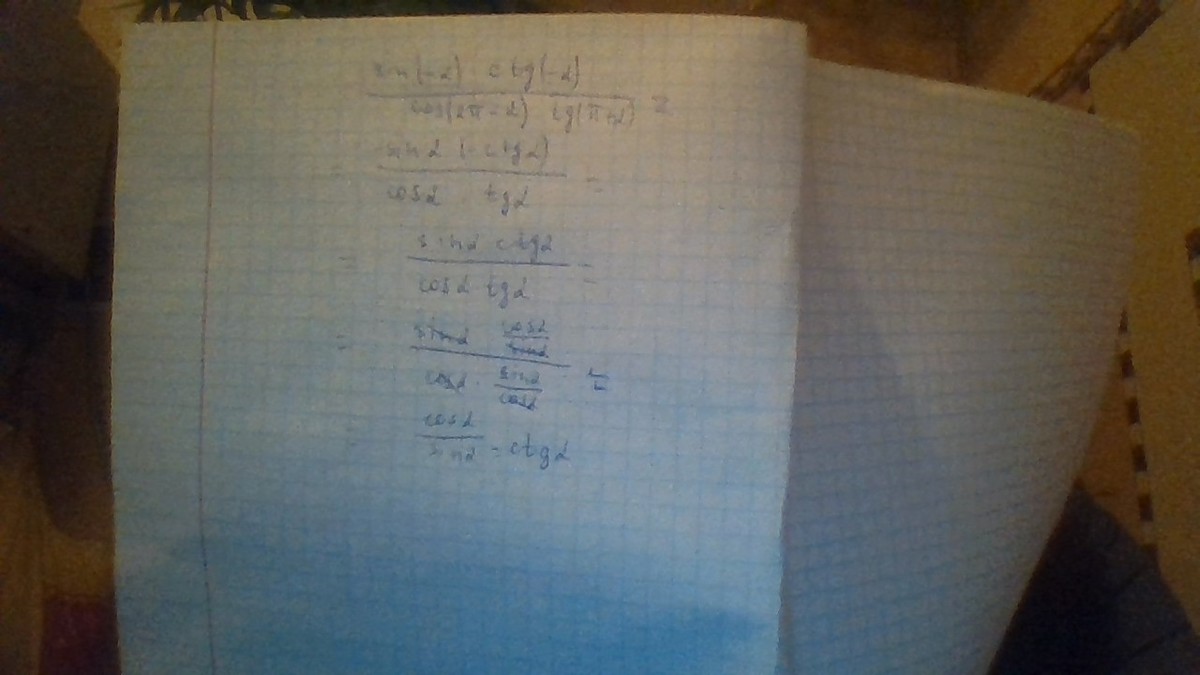 sin(-α) ctg(-α)
cos(2π-α) tg(π+α) =
= -sinα (-ctgα)
cosα · tgα =
= sinα ctgα
cosα tgα =
= sinα cosα
sinα
cosα · sinα =
cosα
= cosα
sinα = ctgα